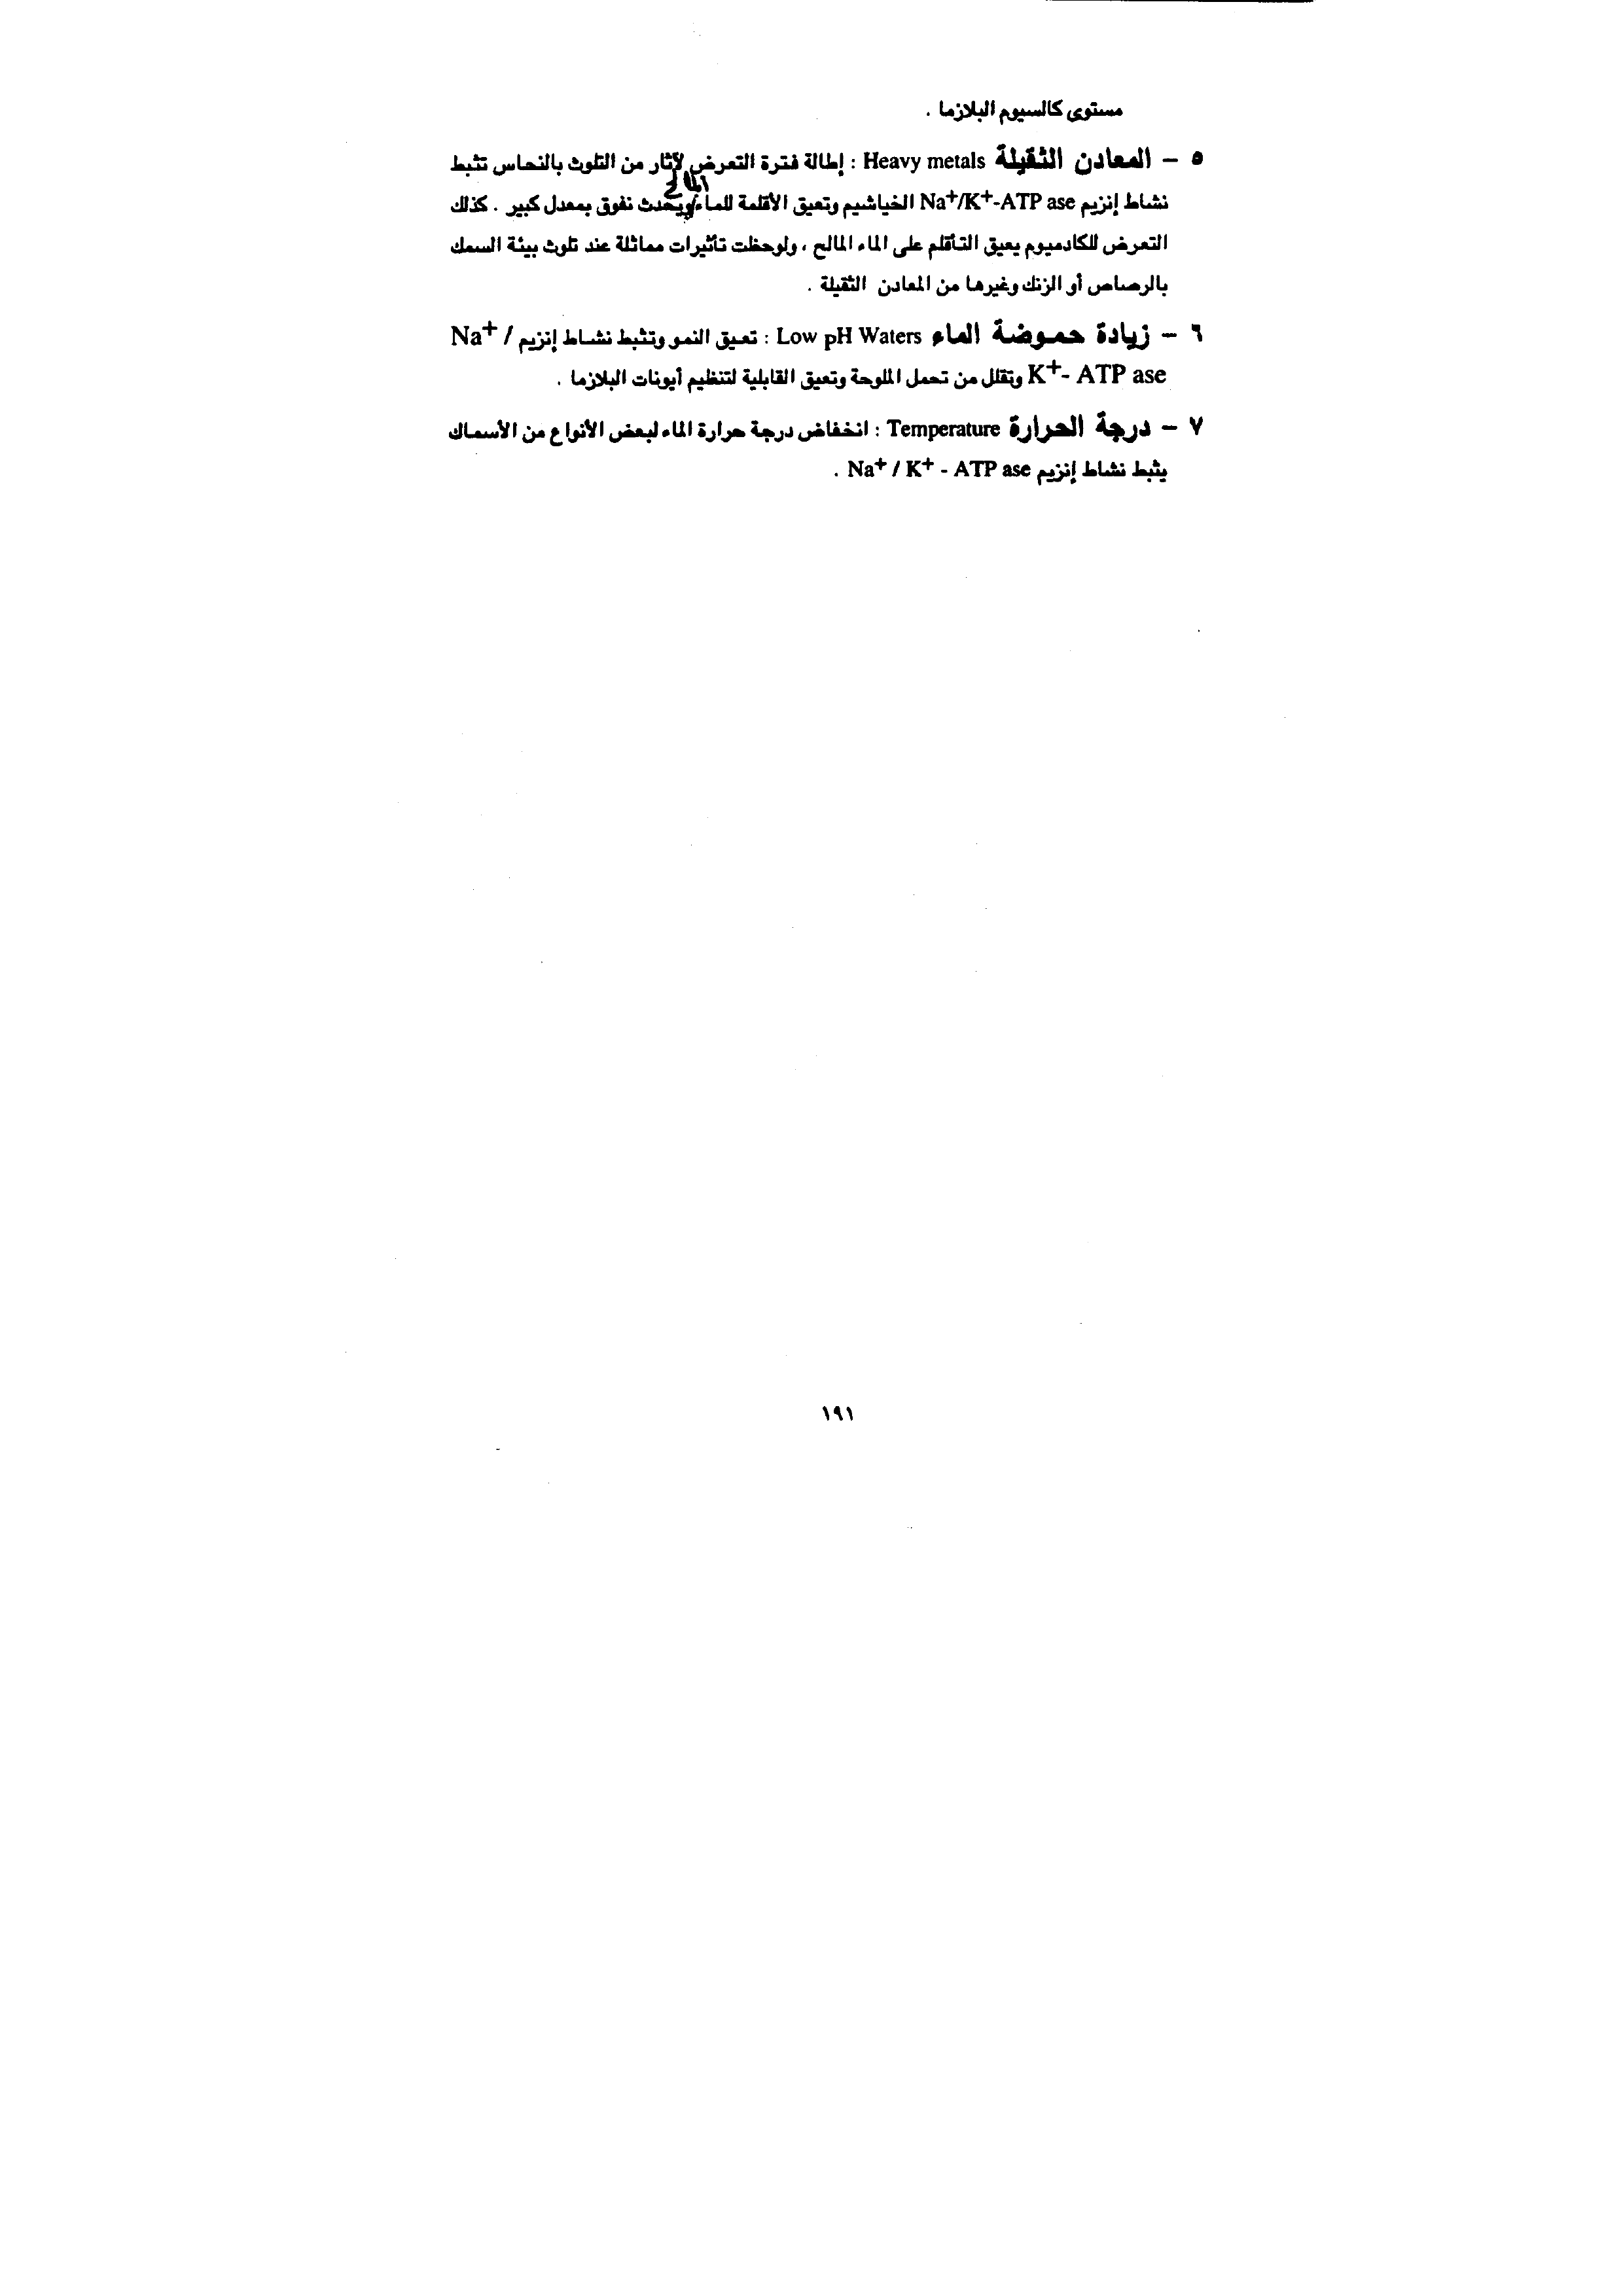 مستوى كالسيوم البلازما .
٥ – المعادن الثقيلة Heavy metals : إطالة فترة التعرض لآثار من التلوث بالنحاس تثبط
المالح
نشاط إنزيم Na+/K+-ATP ase الخياشيم وتعيق الأقلمة للماء/ويحدث نفوق بمعدل كبير . كذلك
التعرض للكادميوم يعيق التأقلم على الماء المالح ، ولوحظت تأثيرات مماثلة عند تلوث بيئة السمك
بالرصاص أو الزنك وغيرها من المعادن الثقيلة .
٦ – زيادة حموضة الماء Low pH Waters : تعيق النمو وتثبط نشاط إنزيم Na+ /
K+- ATP ase وتقلل من تحمل الملوحة وتعيق القابلية لتنظيم أيونات البلازما .
٧ – درجة الحرارة Temperature : انخفاض درجة حرارة الماء لبعض الأنواع من الأسماك
يثبط نشاط إنزيم Na+ / K+ - ATP ase .
١٩١